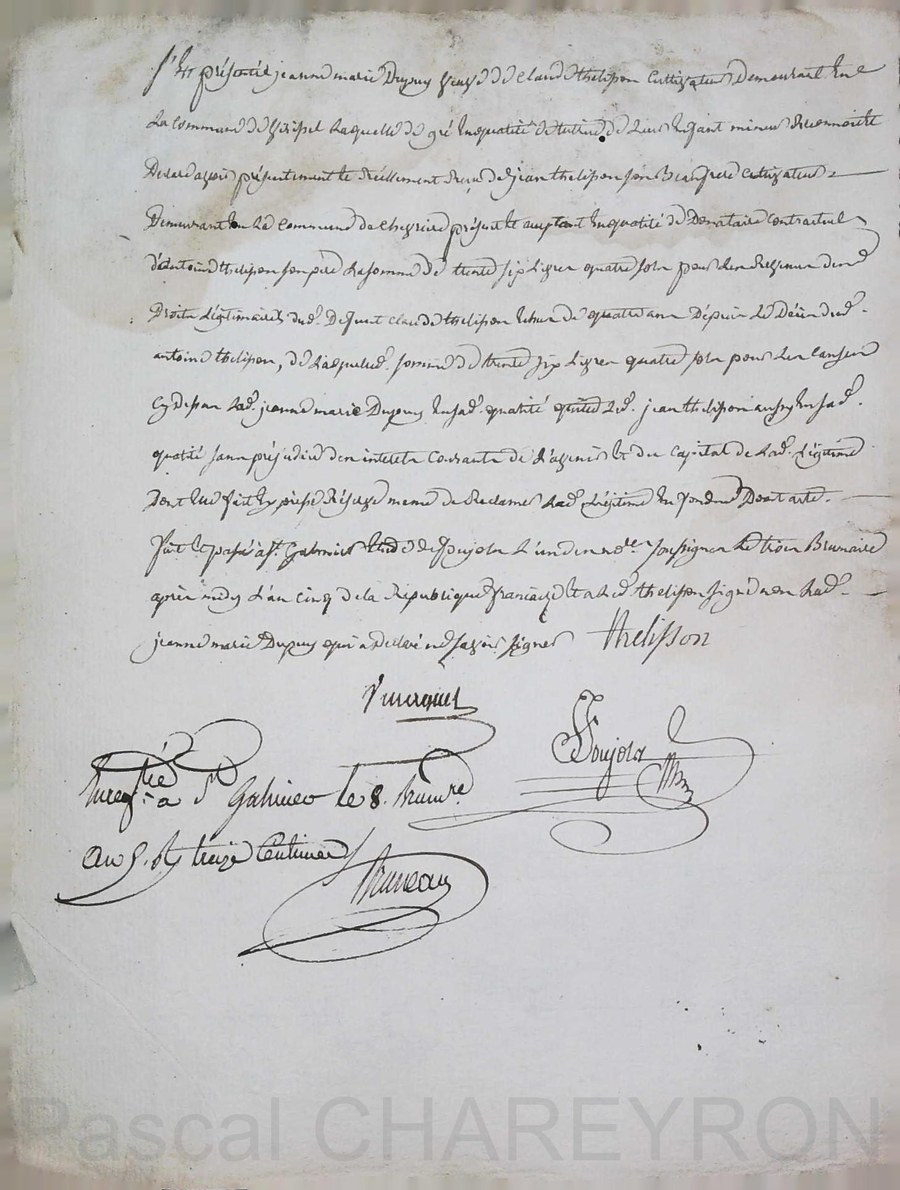 S'est présentée jeanne marie Dupuy veuve de Claude thelisson Cultivateur Demeurant en
La Commune de laquelle de gré en qualité de tutrice de Leur Enfant mineur Reconnoit
avoir présentement et Réellement Reçu de jean thelisson son Beaufrere Cultivateur
Demeurant en La Commune de Chevrieres présent et acceptant en qualité de Donataire Contractuel
d'antoine thelisson son père La somme de trente six Livres quatre sols pour
Droits Légitimaires dud. Defunt Claude thelisson Echus de quatre ans Depuis Le Décès dud.
antoine thelisson, de Laquelle somme de trente six Livres quatre sols pour Les Causes
Cy dessus Lad. jeanne marie Dupuy en sad. qualité quitte Led. jean thelisson aussy en sad.
qualité sans préjudice des interets Courants de L'avenir et du Capital de Lad. Légitime
Dont Elle fait Expresse Réserve meme de Reclamer Lad. Légitime en fonds Dont acte.
fait et passé a St. Galmier Etude de Poujola L'un des nores. soussignes Le trois Brumaire
après midy L'an cinq de la République française Et a Led. thelisson signé non Lad.
jeanne marie Dupuy qui a declaré ne savoir signer thelisson
Poujola
Enregtré. a St Galmier le 8. Brumre.
an 5. treize Centimes